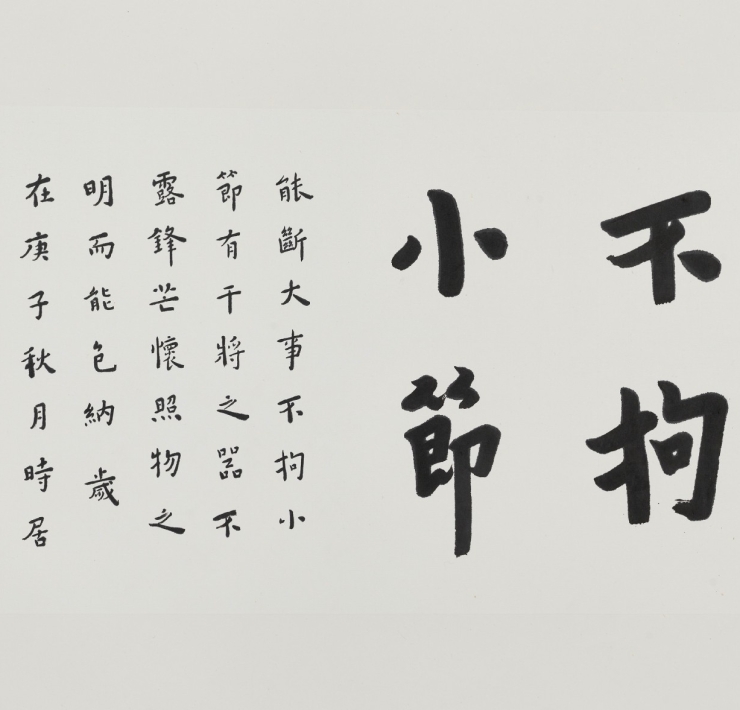 不拘
小節
能斷大事不拘小
節有干將之器不
露鋒芒懷照物之
明而能包納歲
在庚子秋月時居